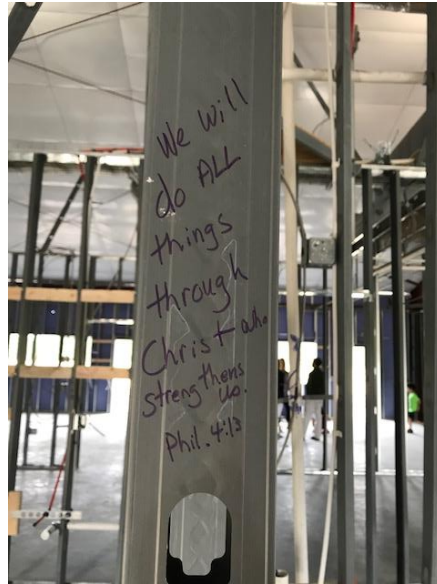 We will
do ALL
things
through
Christ who
strengthens
us.
Phil. 4:13